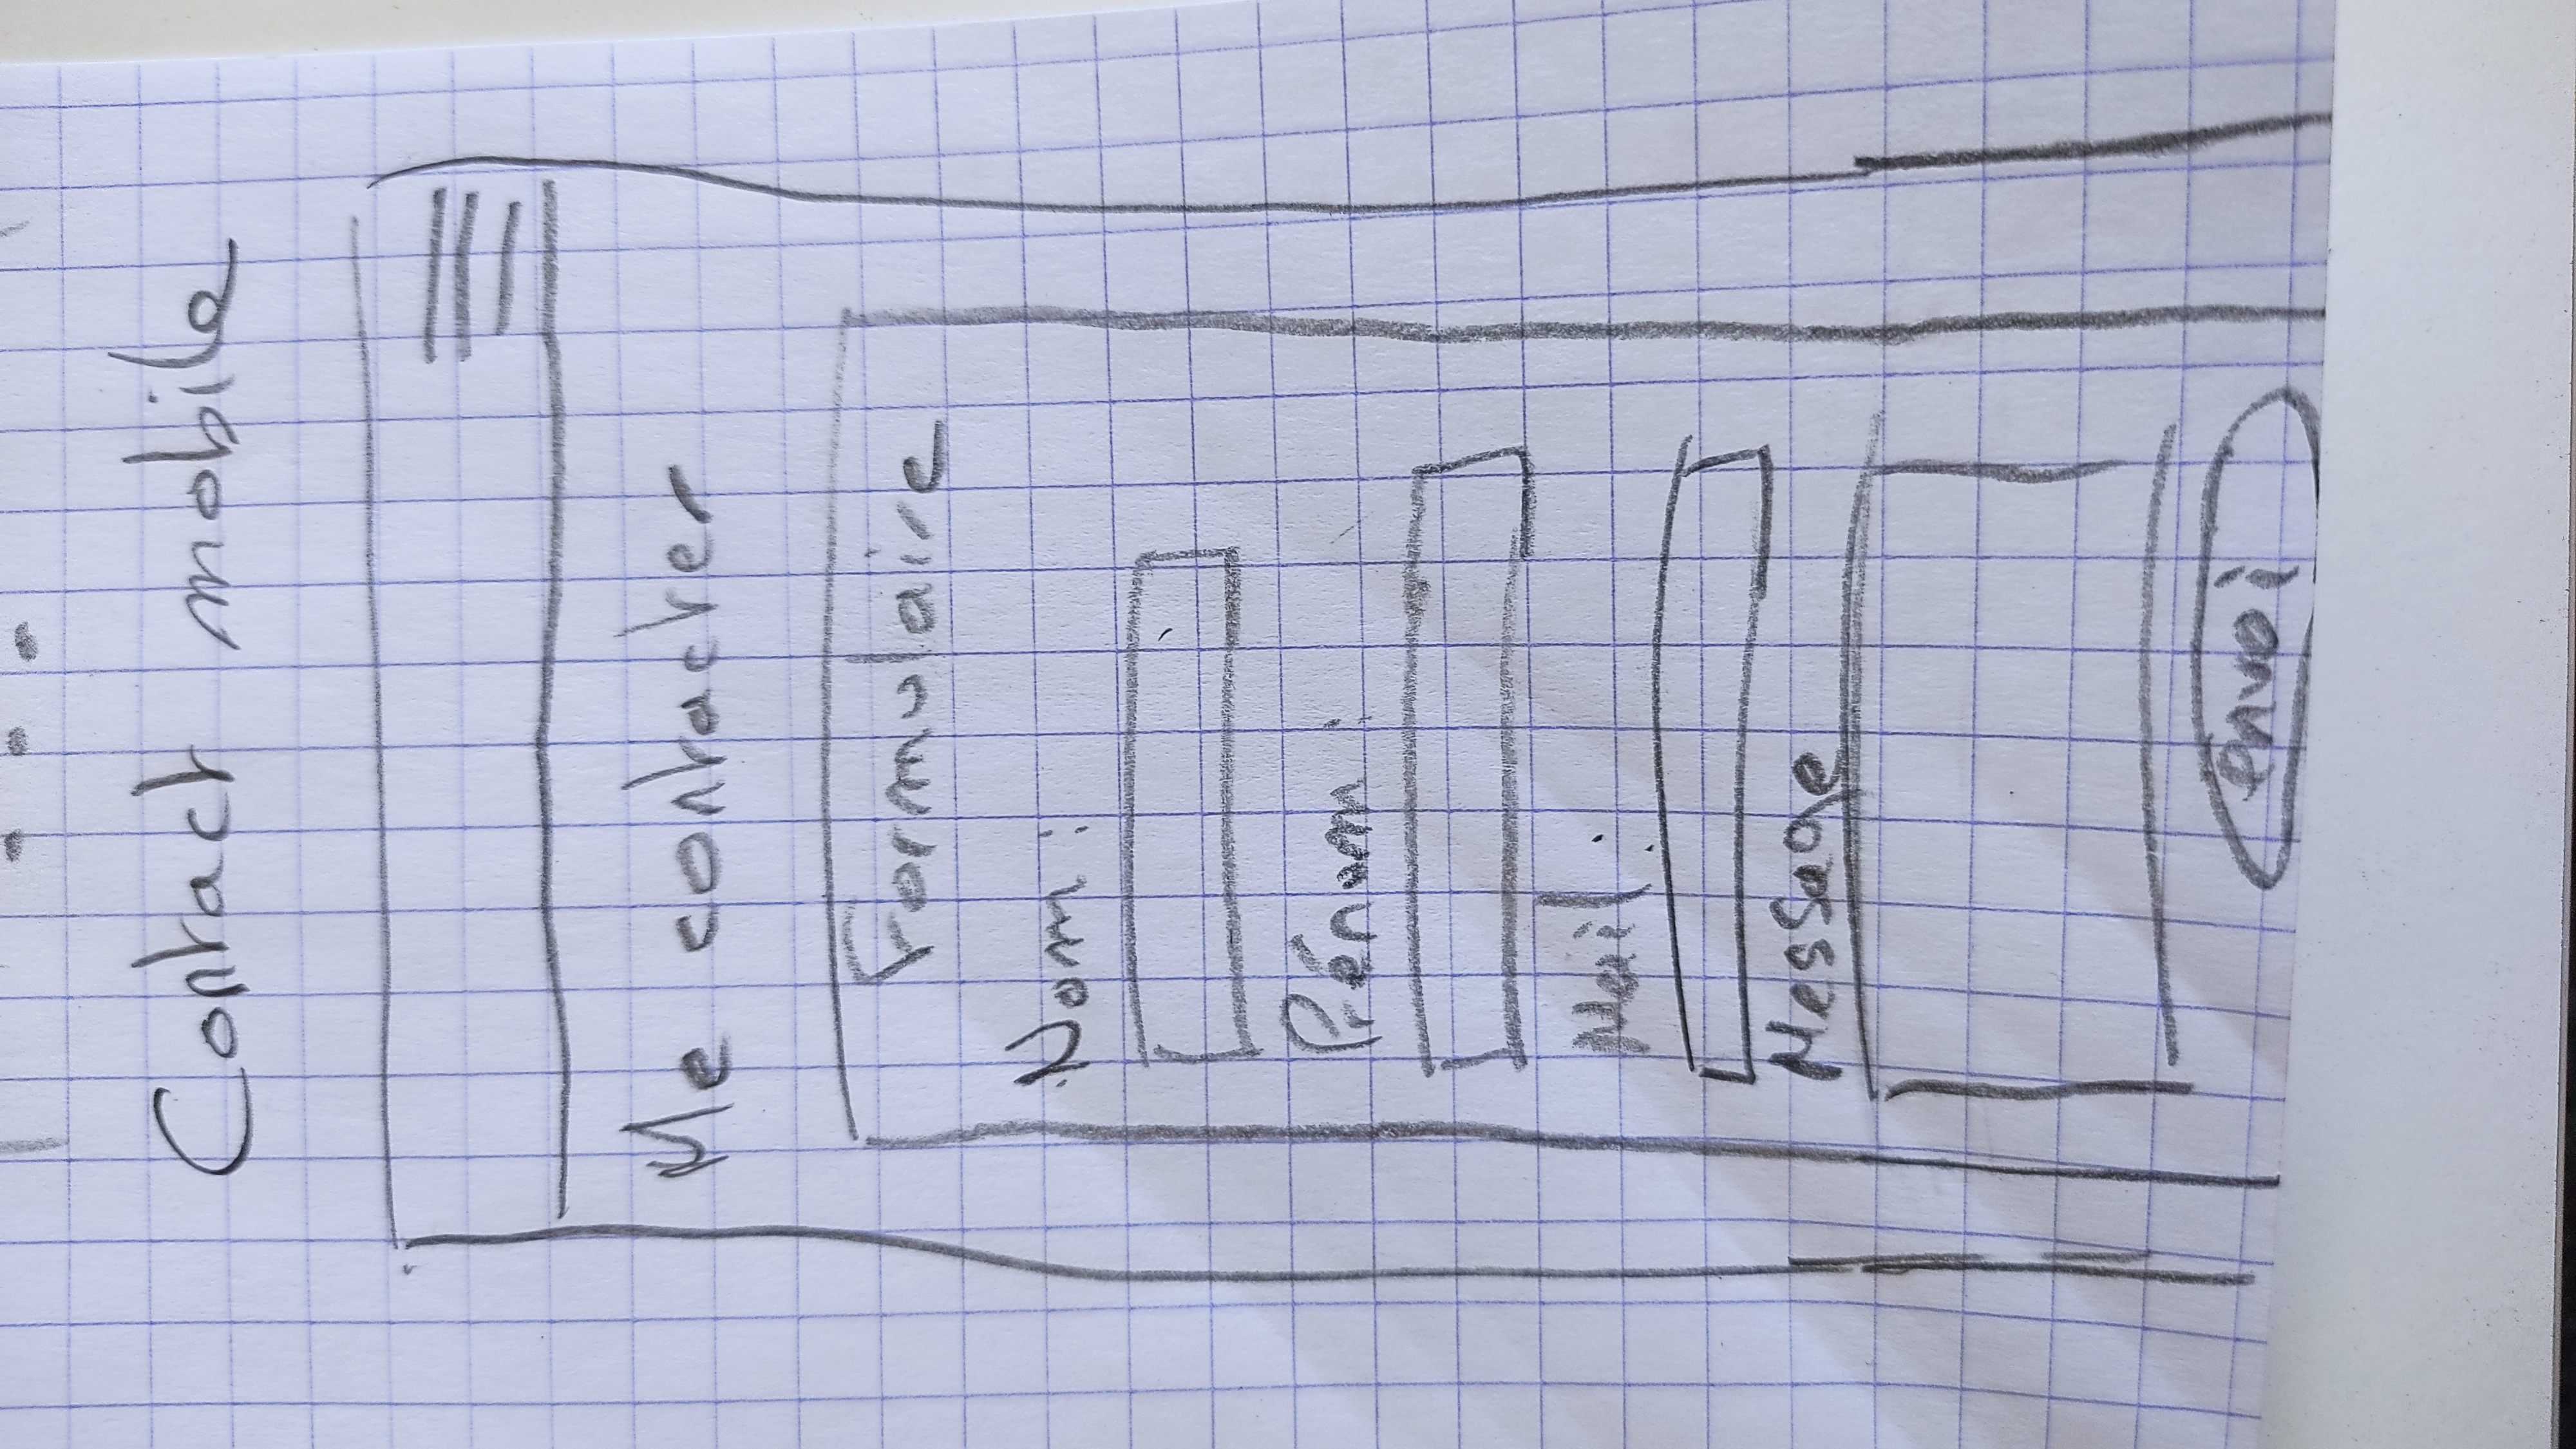 Contact mobile
Me contacter
Formulaire
Nom :
Prénom :
Mail :
Message
envoi